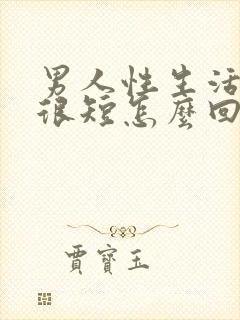 男人性生活
很短怎麼回
賈寶玉